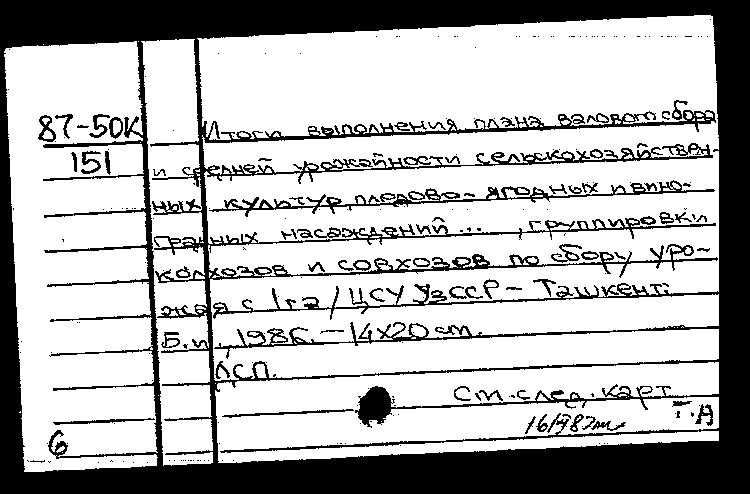 87-50К Итоги выполнения плана валового сбора
151 и средней урожайности сельскохозяйствен-
ных культур, плодово- ягодных и вино-
градных насаждений ... , группировки
колхозов и совхозов по сбору уро-
жая с 1 га / ЦСУ УзССР - Ташкент:
Б.и., 1986. - 14х20 см.
ДСП.
См. след. карт
Т.А
6